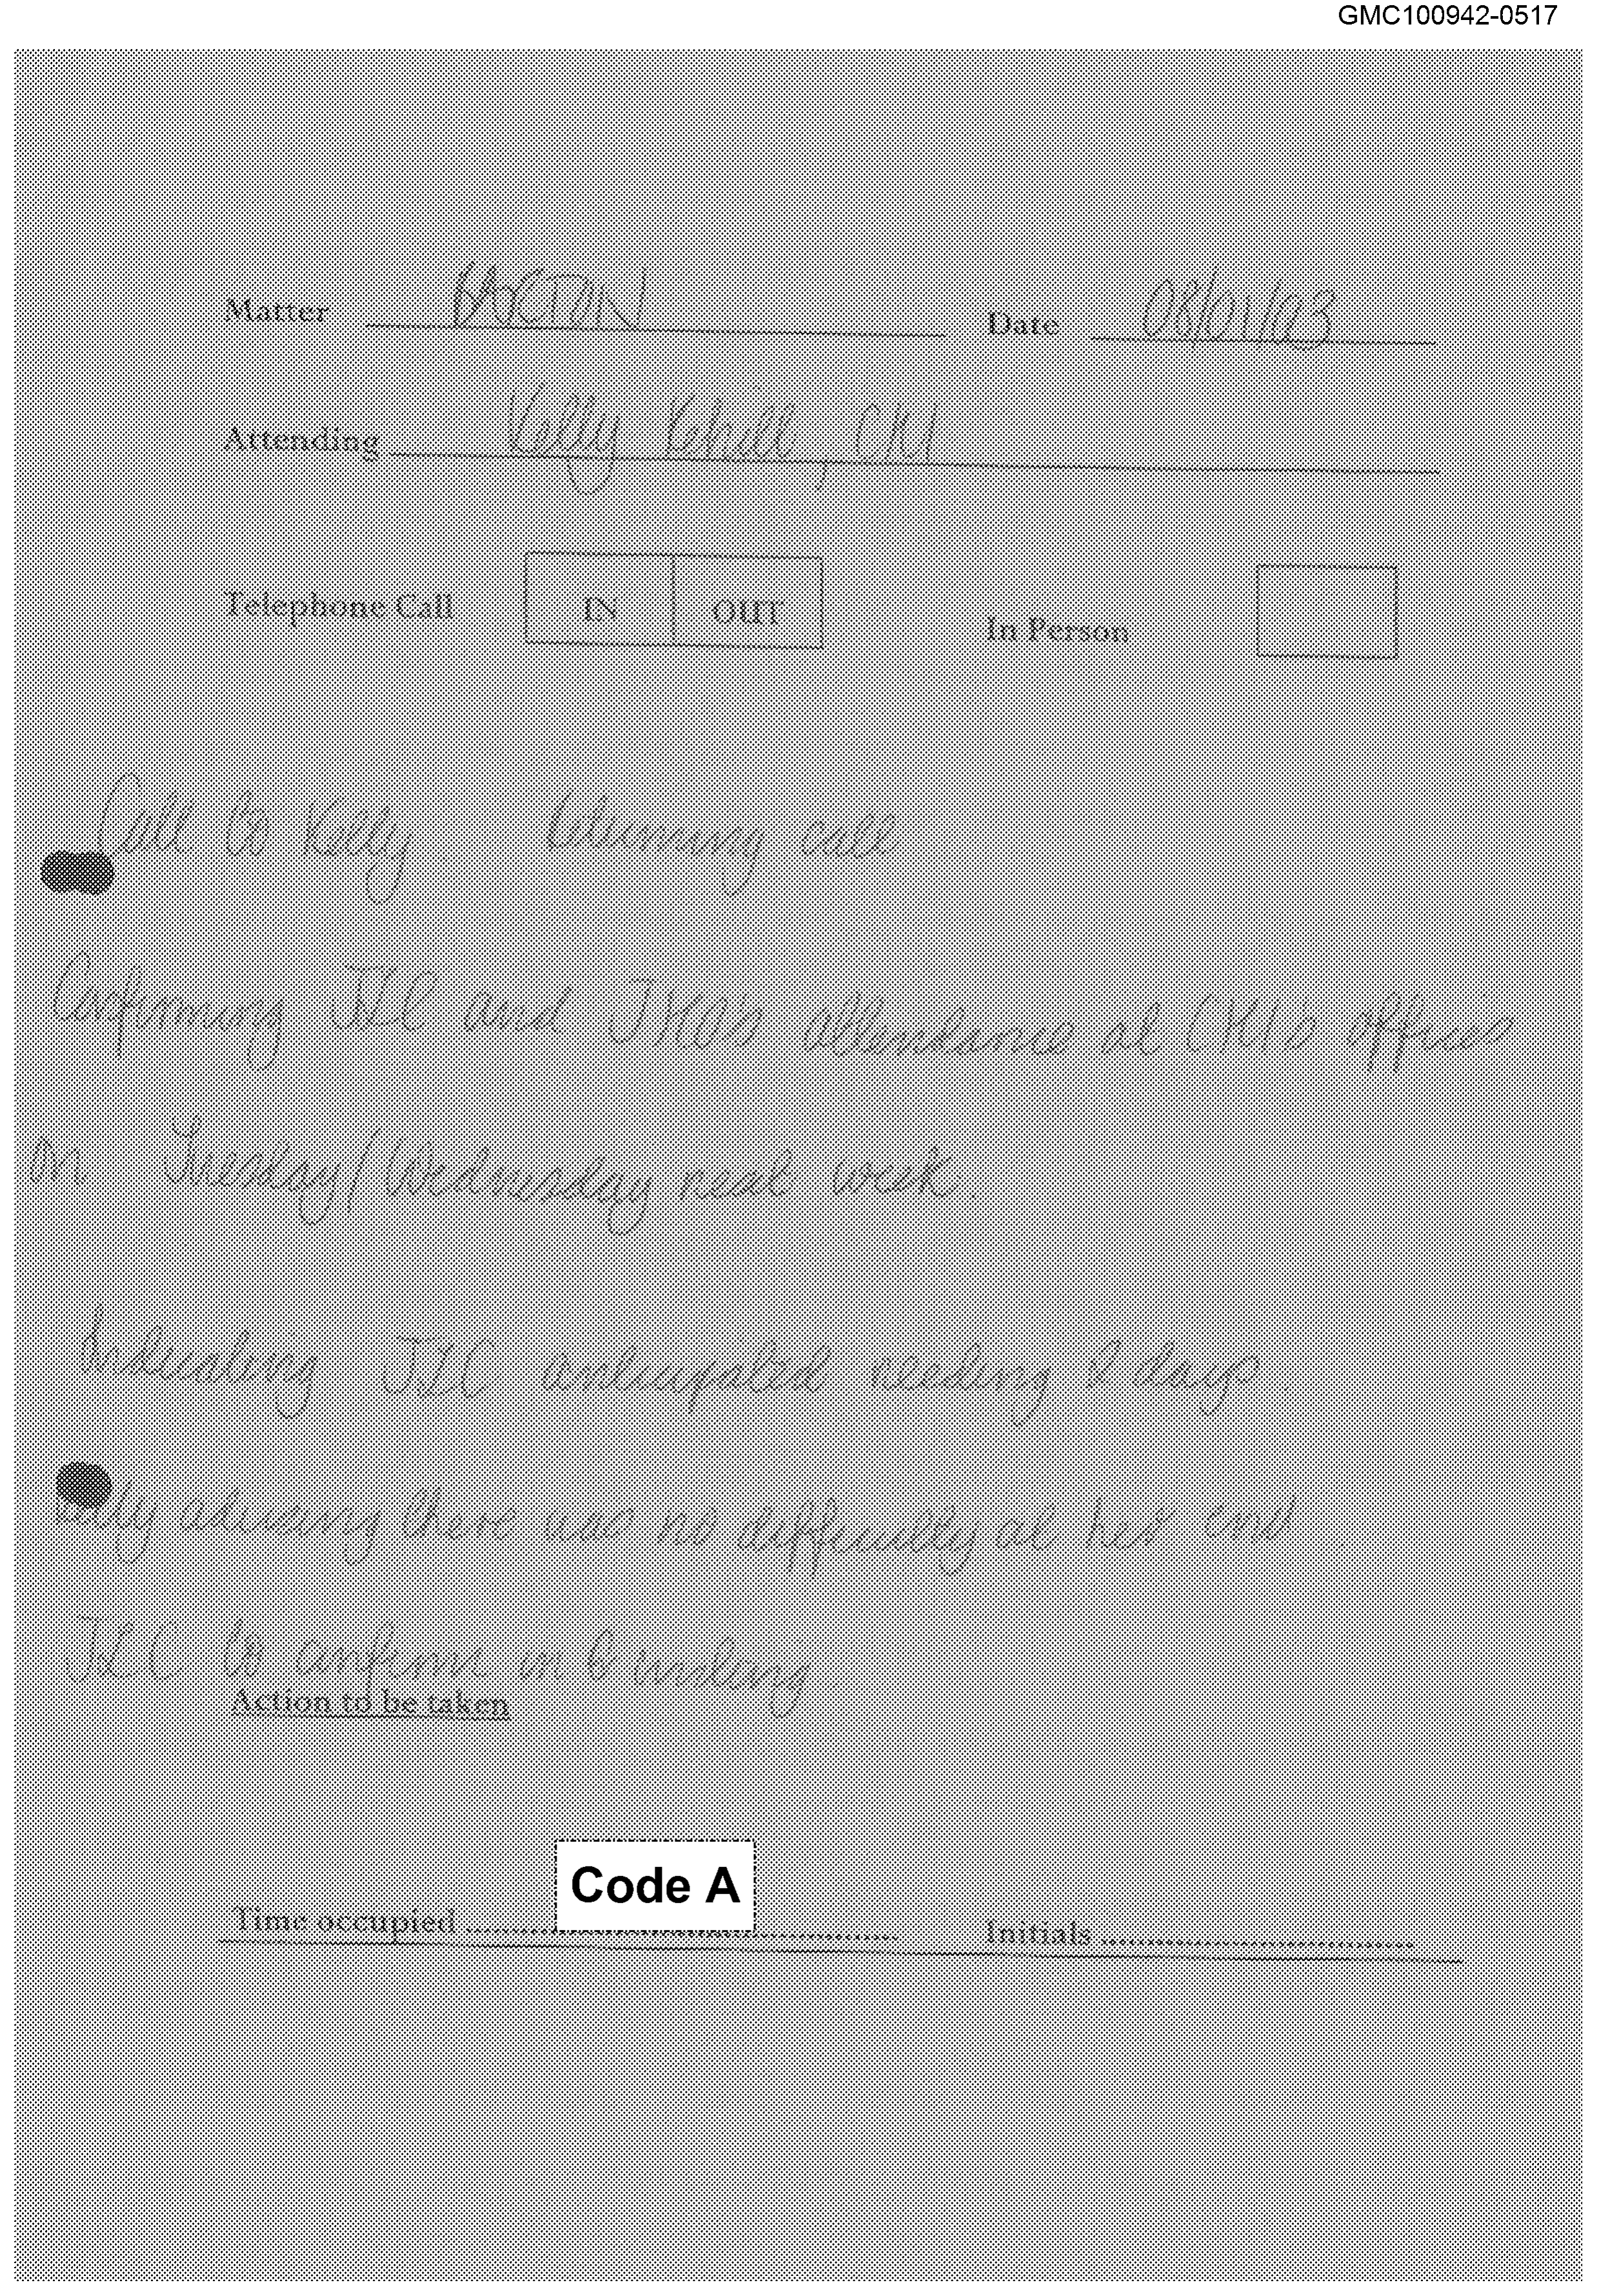 GMC100942-0517
Matter BARTON Date 08/01/03
Attending Kelly
Telephone Call IN OUT In Person
Call to Kelly. Returning call
Confirming JZC and attendance at offices
on Tuesday/Wednesday next week.
Indicating JZC anticipated needing 2 days
Kelly advising there was no difficulty at her end
JZC to confirm in writing
Action to be taken
Code A
Time occupied Initials